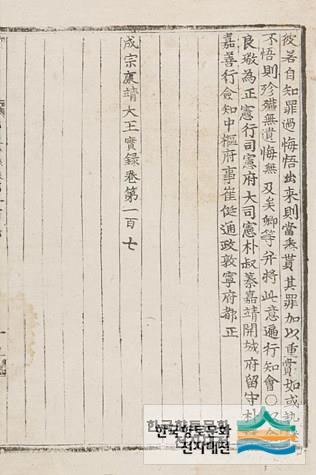 彼若自知罪過悔悟出來則當無貰其罪加以重賞如或執
不悟則殄殲無遺悔無及矣卿等幷將此意遍行知會〇
良璥為正憲行司憲府大司憲朴叔蓁嘉靖開城府留守朴
嘉善行僉知中樞府事崔侹通政敦寧府都正
成宗康靖大王實錄卷第一百七
한국향토문화
전자대전